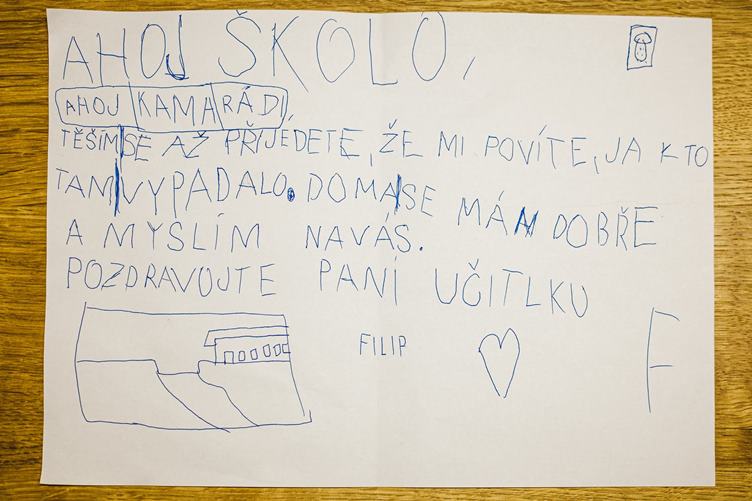 AHOJ ŠKOLO,
AHOJ KAMARÁDI,
TĚŠÍM SE AŽ PŘIJEDETE, ŽE MI POVÍTE, JA K TO
TAM VYPADALO. DOMA SE MÁM DOBŘE
A MYSLÍM NAVÁS.
POZDRAVOJTE PANÍ UČITLKU
FILIP
F